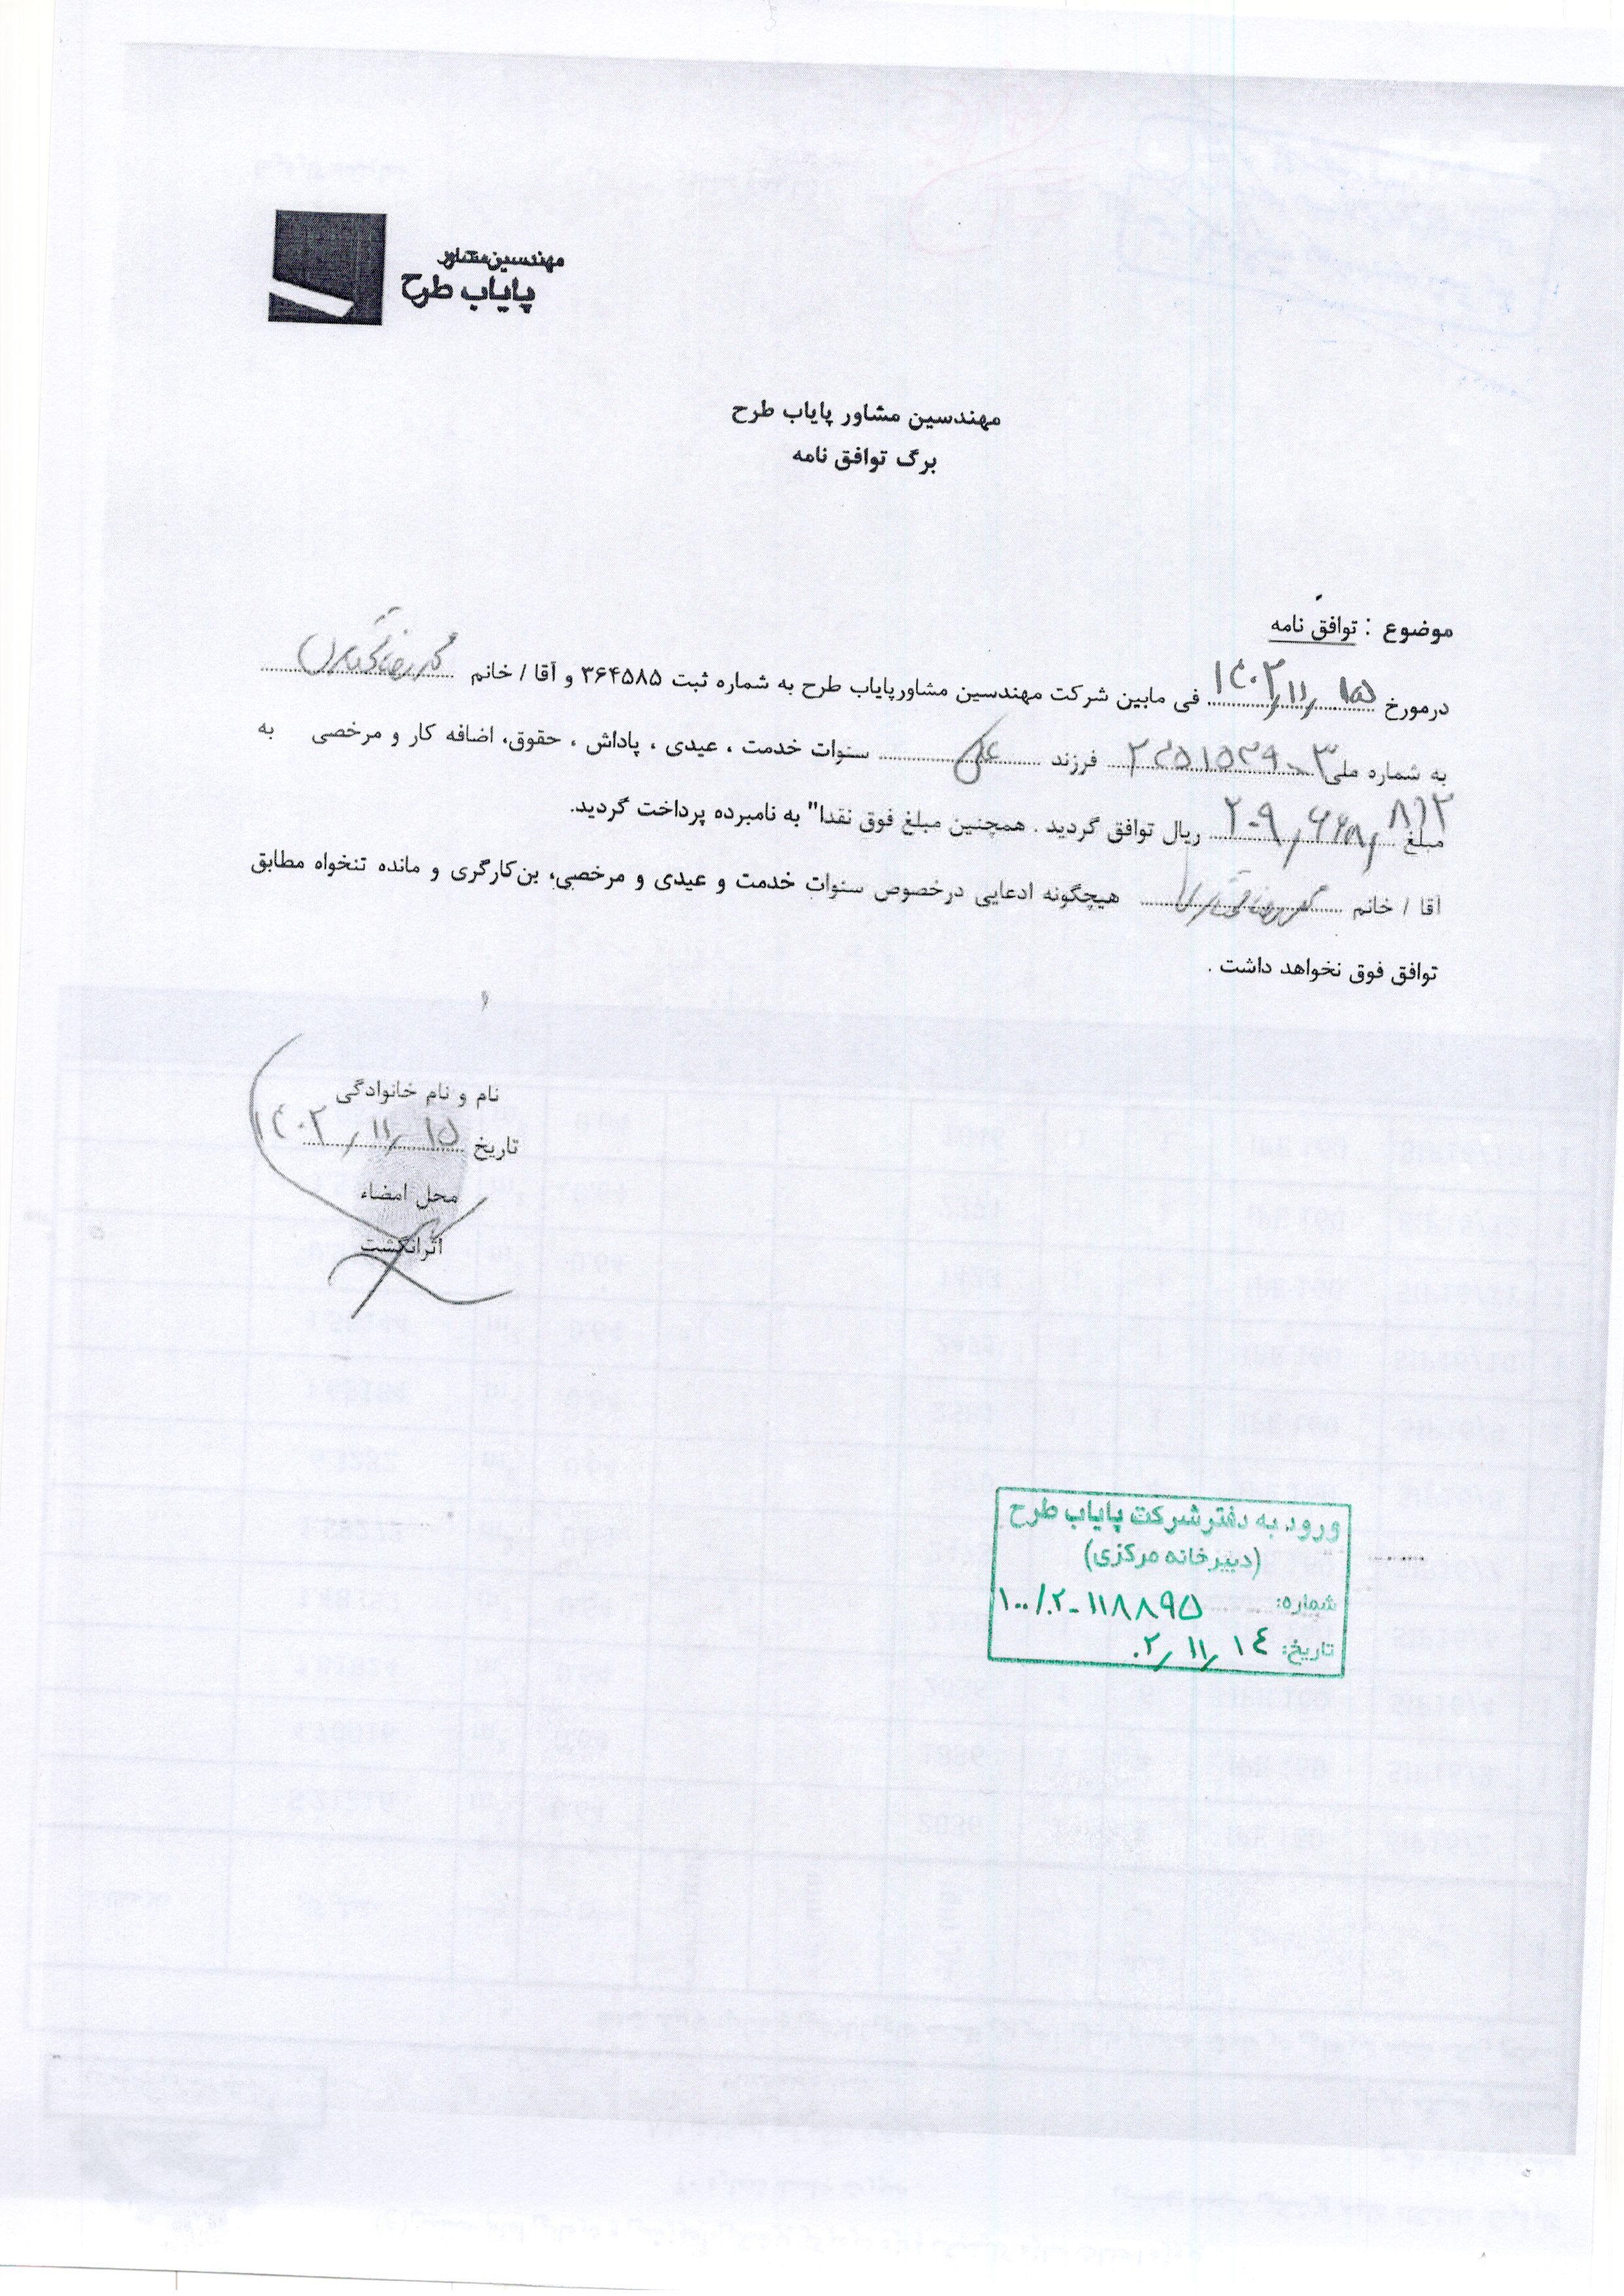 مهندسین مشاور
پایاب طرح
مهندسین مشاور پایاب طرح
برگ توافق نامه
موضوع : توافق نامه
درمورخ ۱۴۰۲/۱۱/۱۵ فی مابین شرکت مهندسین مشاورپایاب طرح به شماره ثبت ۳۶۴۵۸۵ و آقا / خانم محمدرضا
به شماره ملی فرزند علی سنوات خدمت ، عیدی ، پاداش ، حقوق، اضافه کار و مرخصی به
مبلغ ریال توافق گردید . همچنین مبلغ فوق نقدا" به نامبرده پرداخت گردید.
آقا / خانم محمدرضا هیچگونه ادعایی درخصوص سنوات خدمت و عیدی و مرخصی، بن‌کارگری و مانده تنخواه مطابق
توافق فوق نخواهد داشت .
نام و نام خانوادگی
تاریخ ۱۴۰۲/۱۱/۱۵
محل امضاء
اثرانگشت
ورود به دفتر شرکت پایاب طرح
(دبیرخانه مرکزی)
شماره: ۱۰۰/۰۲-۱۱۸۸۹۵
تاریخ: ۰۲/۱۱/۱۴